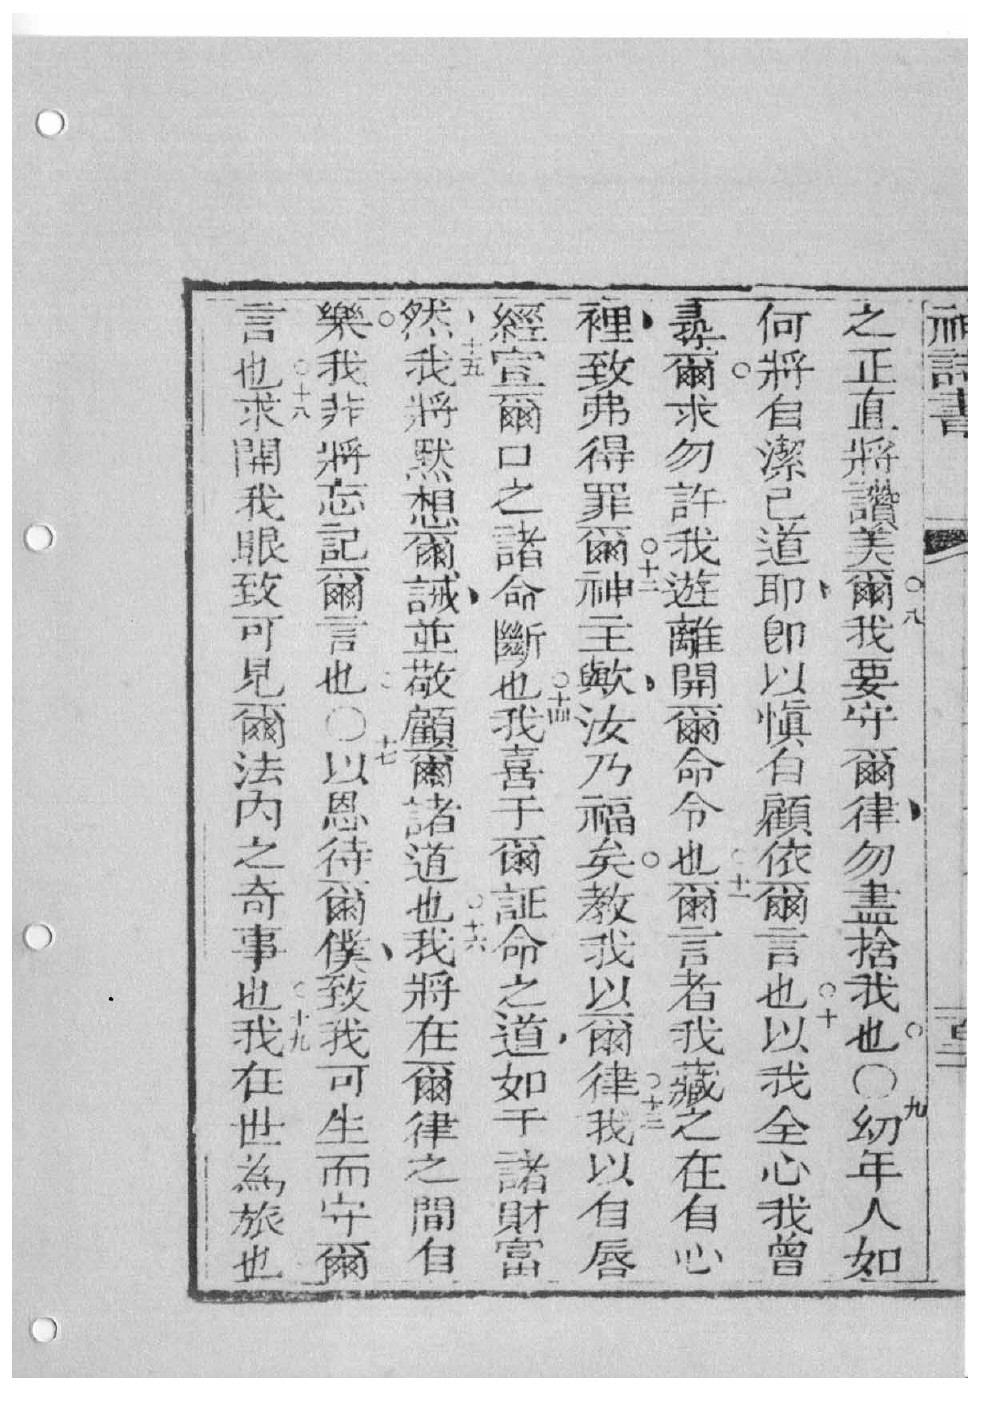 神詩書
之正直將讚美爾○八我要守爾律勿盡捨我也○九幼年人如
何將自潔己道耶卽以愼自顧依爾言也○十以我全心我曾
尋爾求勿許我遊離開爾命令也○十一爾言者我藏之在自心
裡致弗得罪爾○十二神主歟汝乃福矣教我以爾律○十三我以自唇
經宣爾口之諸命斷也○十四我喜于爾証命之道如于諸財富
然○十五我將默想爾誡並敬顧爾諸道也○十六我將在爾律之間自
樂我非將忘記爾言也○十七以恩待爾僕致我可生而守爾
言也○十八求開我眼致可見爾法內之奇事也○十九我在世為旅也